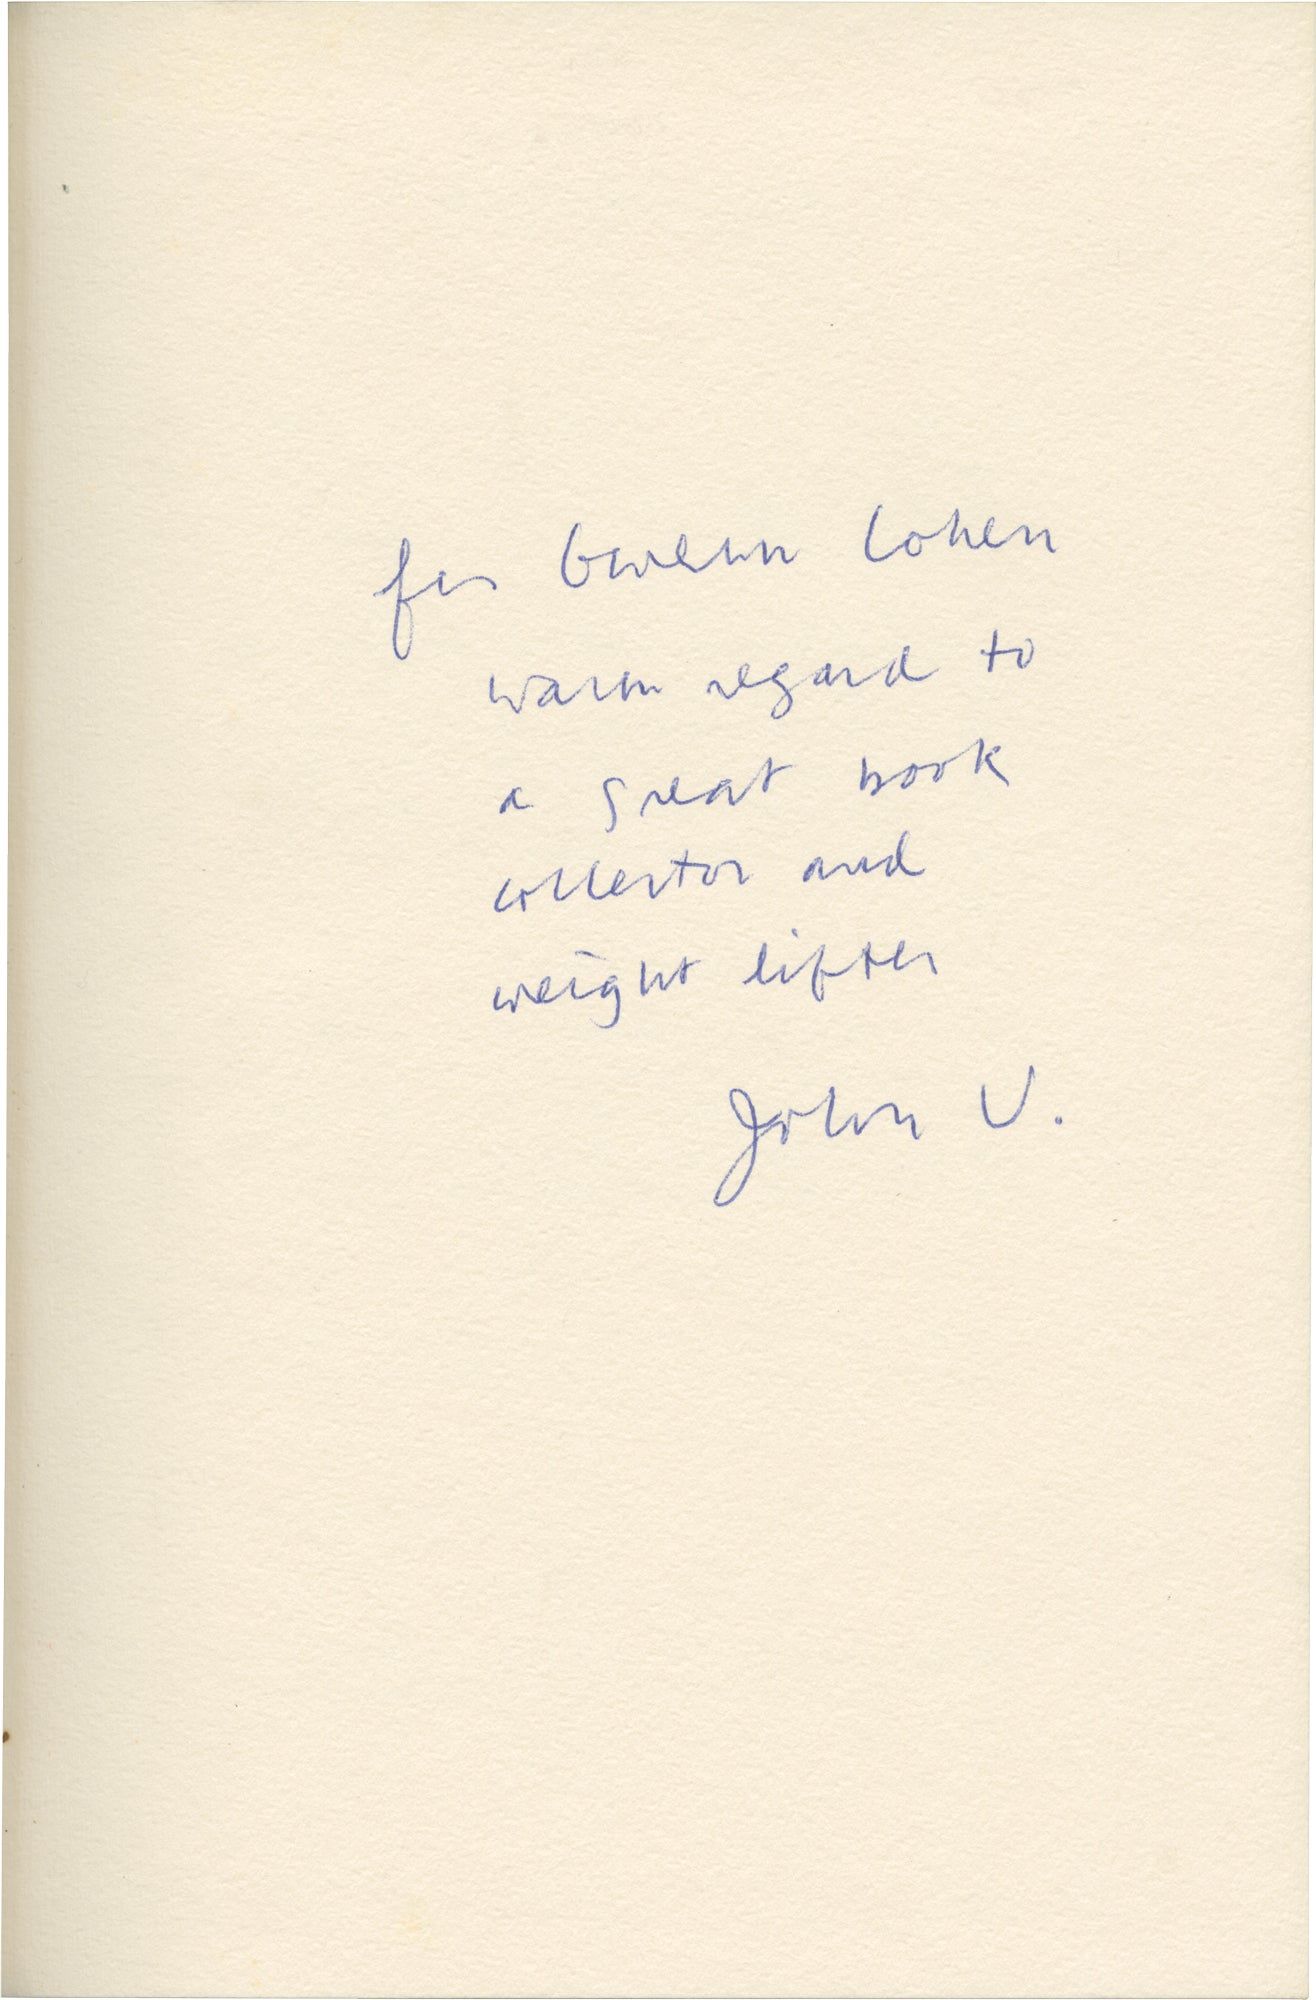 for Gwenn Cohen
warm regard to
a great book
collector and
weight lifter
John U.